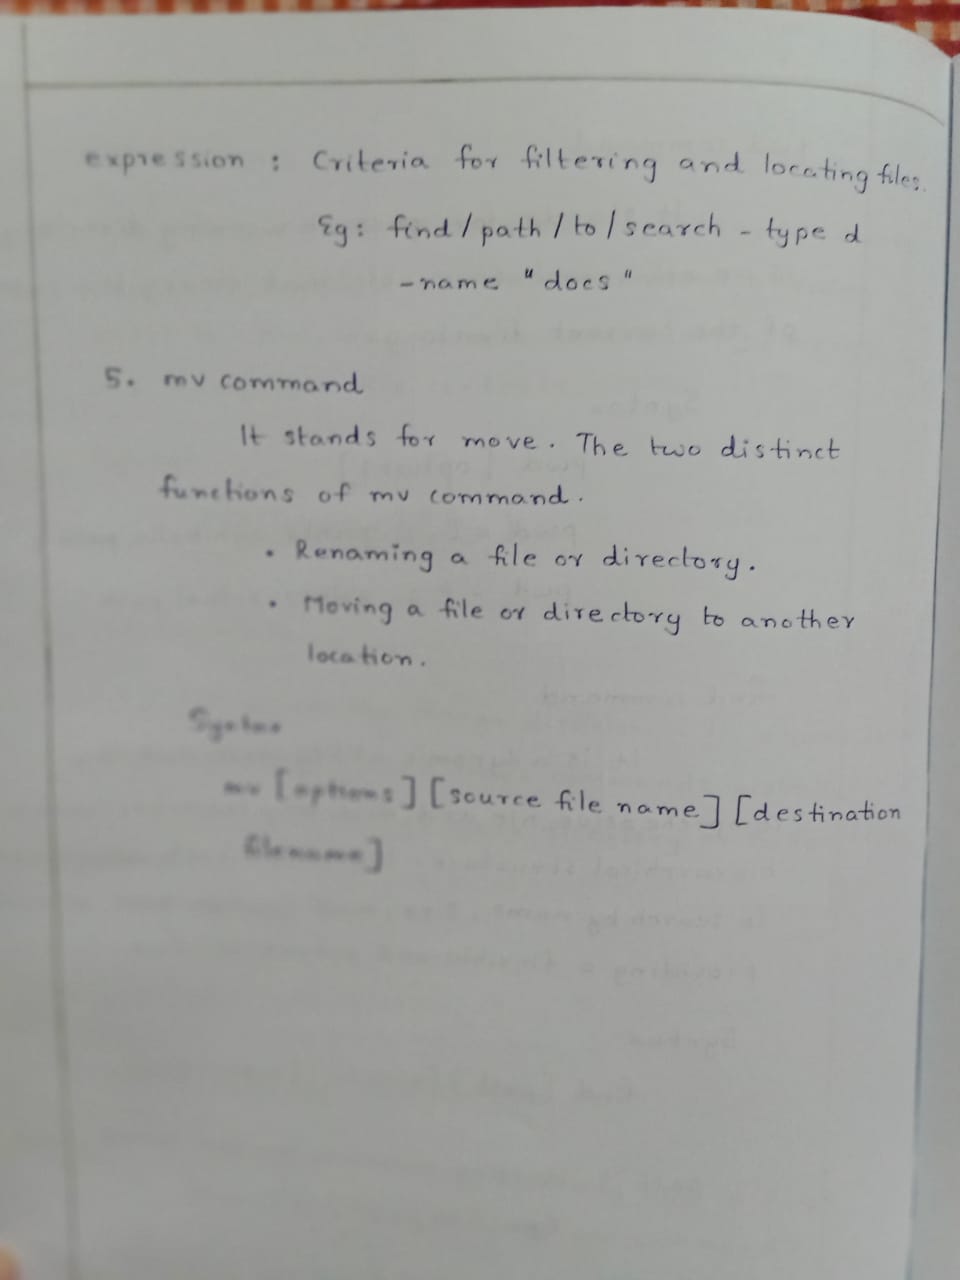 expression : Criteria for filtering and locating files.
Eg: find / path / to / search - type d
- name "docs"
5. mv command
It stands for move. The two distinct
functions of mv command.
• Renaming a file or directory.
• Moving a file or directory to another
location.
Syntax
mv [options] [source file name] [destination
filename]